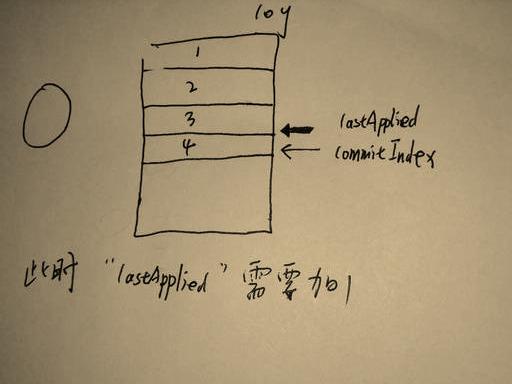 log
1
2
3
lastApplied
4
commitIndex
此时 "lastApplied" 需要加1